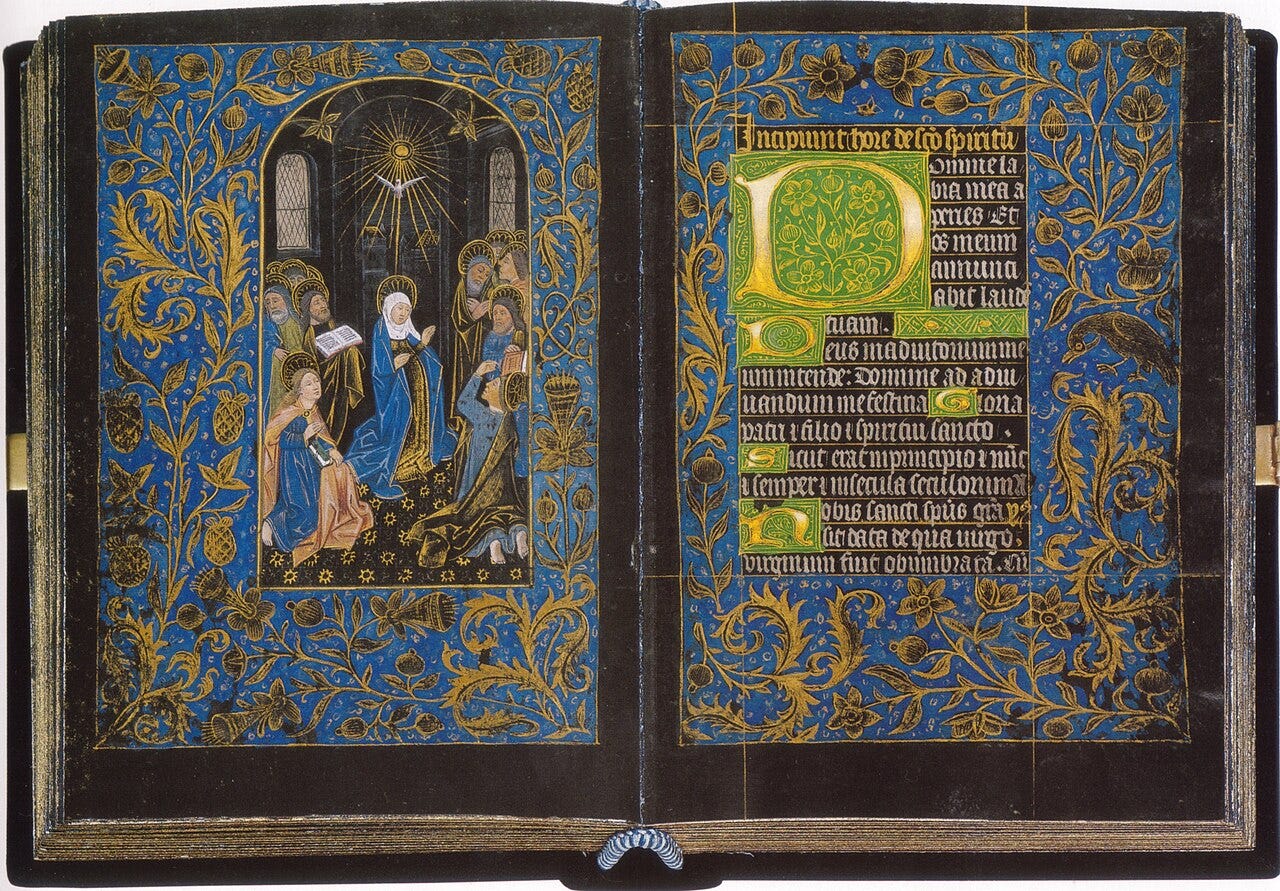 Incipiunt hore de sc̄o spiritu
Domine la
bia mea a
peries. Et
os meum
annunci
abit laudē
tuam.
Deus in adiutorium me
um intende. Domine ad adiu
uandum me festina Gloria
patri ⁊ filio ⁊ spiritui sancto.
Sicut erat in principio ⁊ nūc
⁊ semper ⁊ in secula seculorum A
Nobis sancti spūs gra
sit data de qua uirgo
uirginum fuit obumbrata. Cū